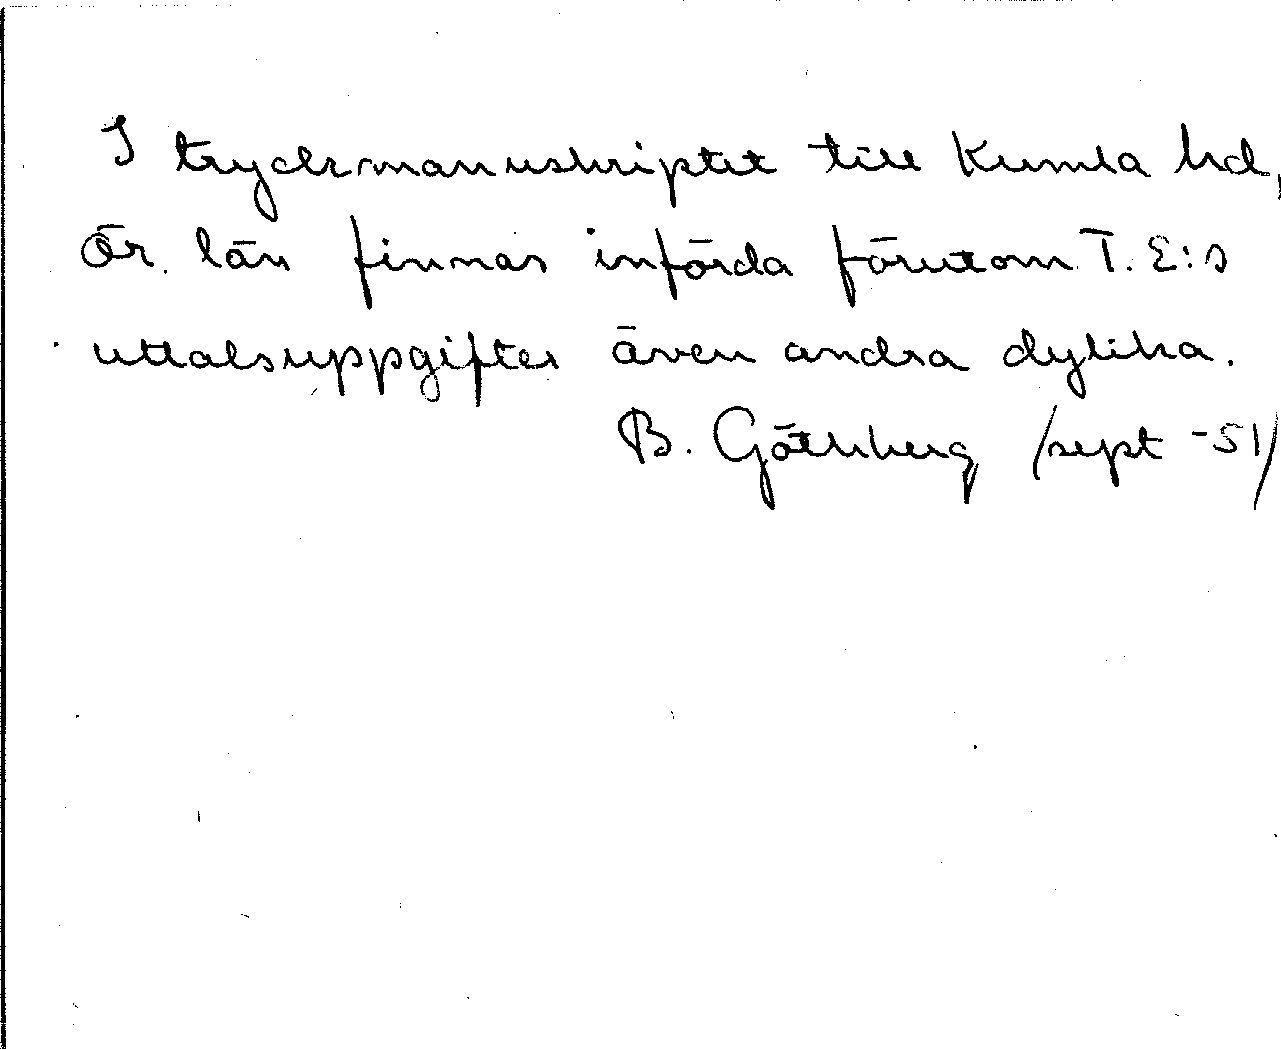 I tryckmanuskriptet till Kumla hd,
Ör. län finnas införda förutom T. E:s
uttalsuppgifter även andra dylika.
B. Göthberg /sept -51/